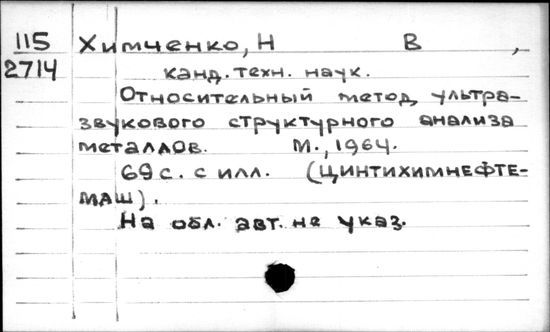 115 Химченко, Н В ,
2714 канд. техн. наук.
Относительный метод ультра-
звукового структурного анализа
металлов. М., 1964.
69 с. с илл. (ЦИНТИХИМНЕФТЕ-
МАШ).
На обл. авт. не указ.